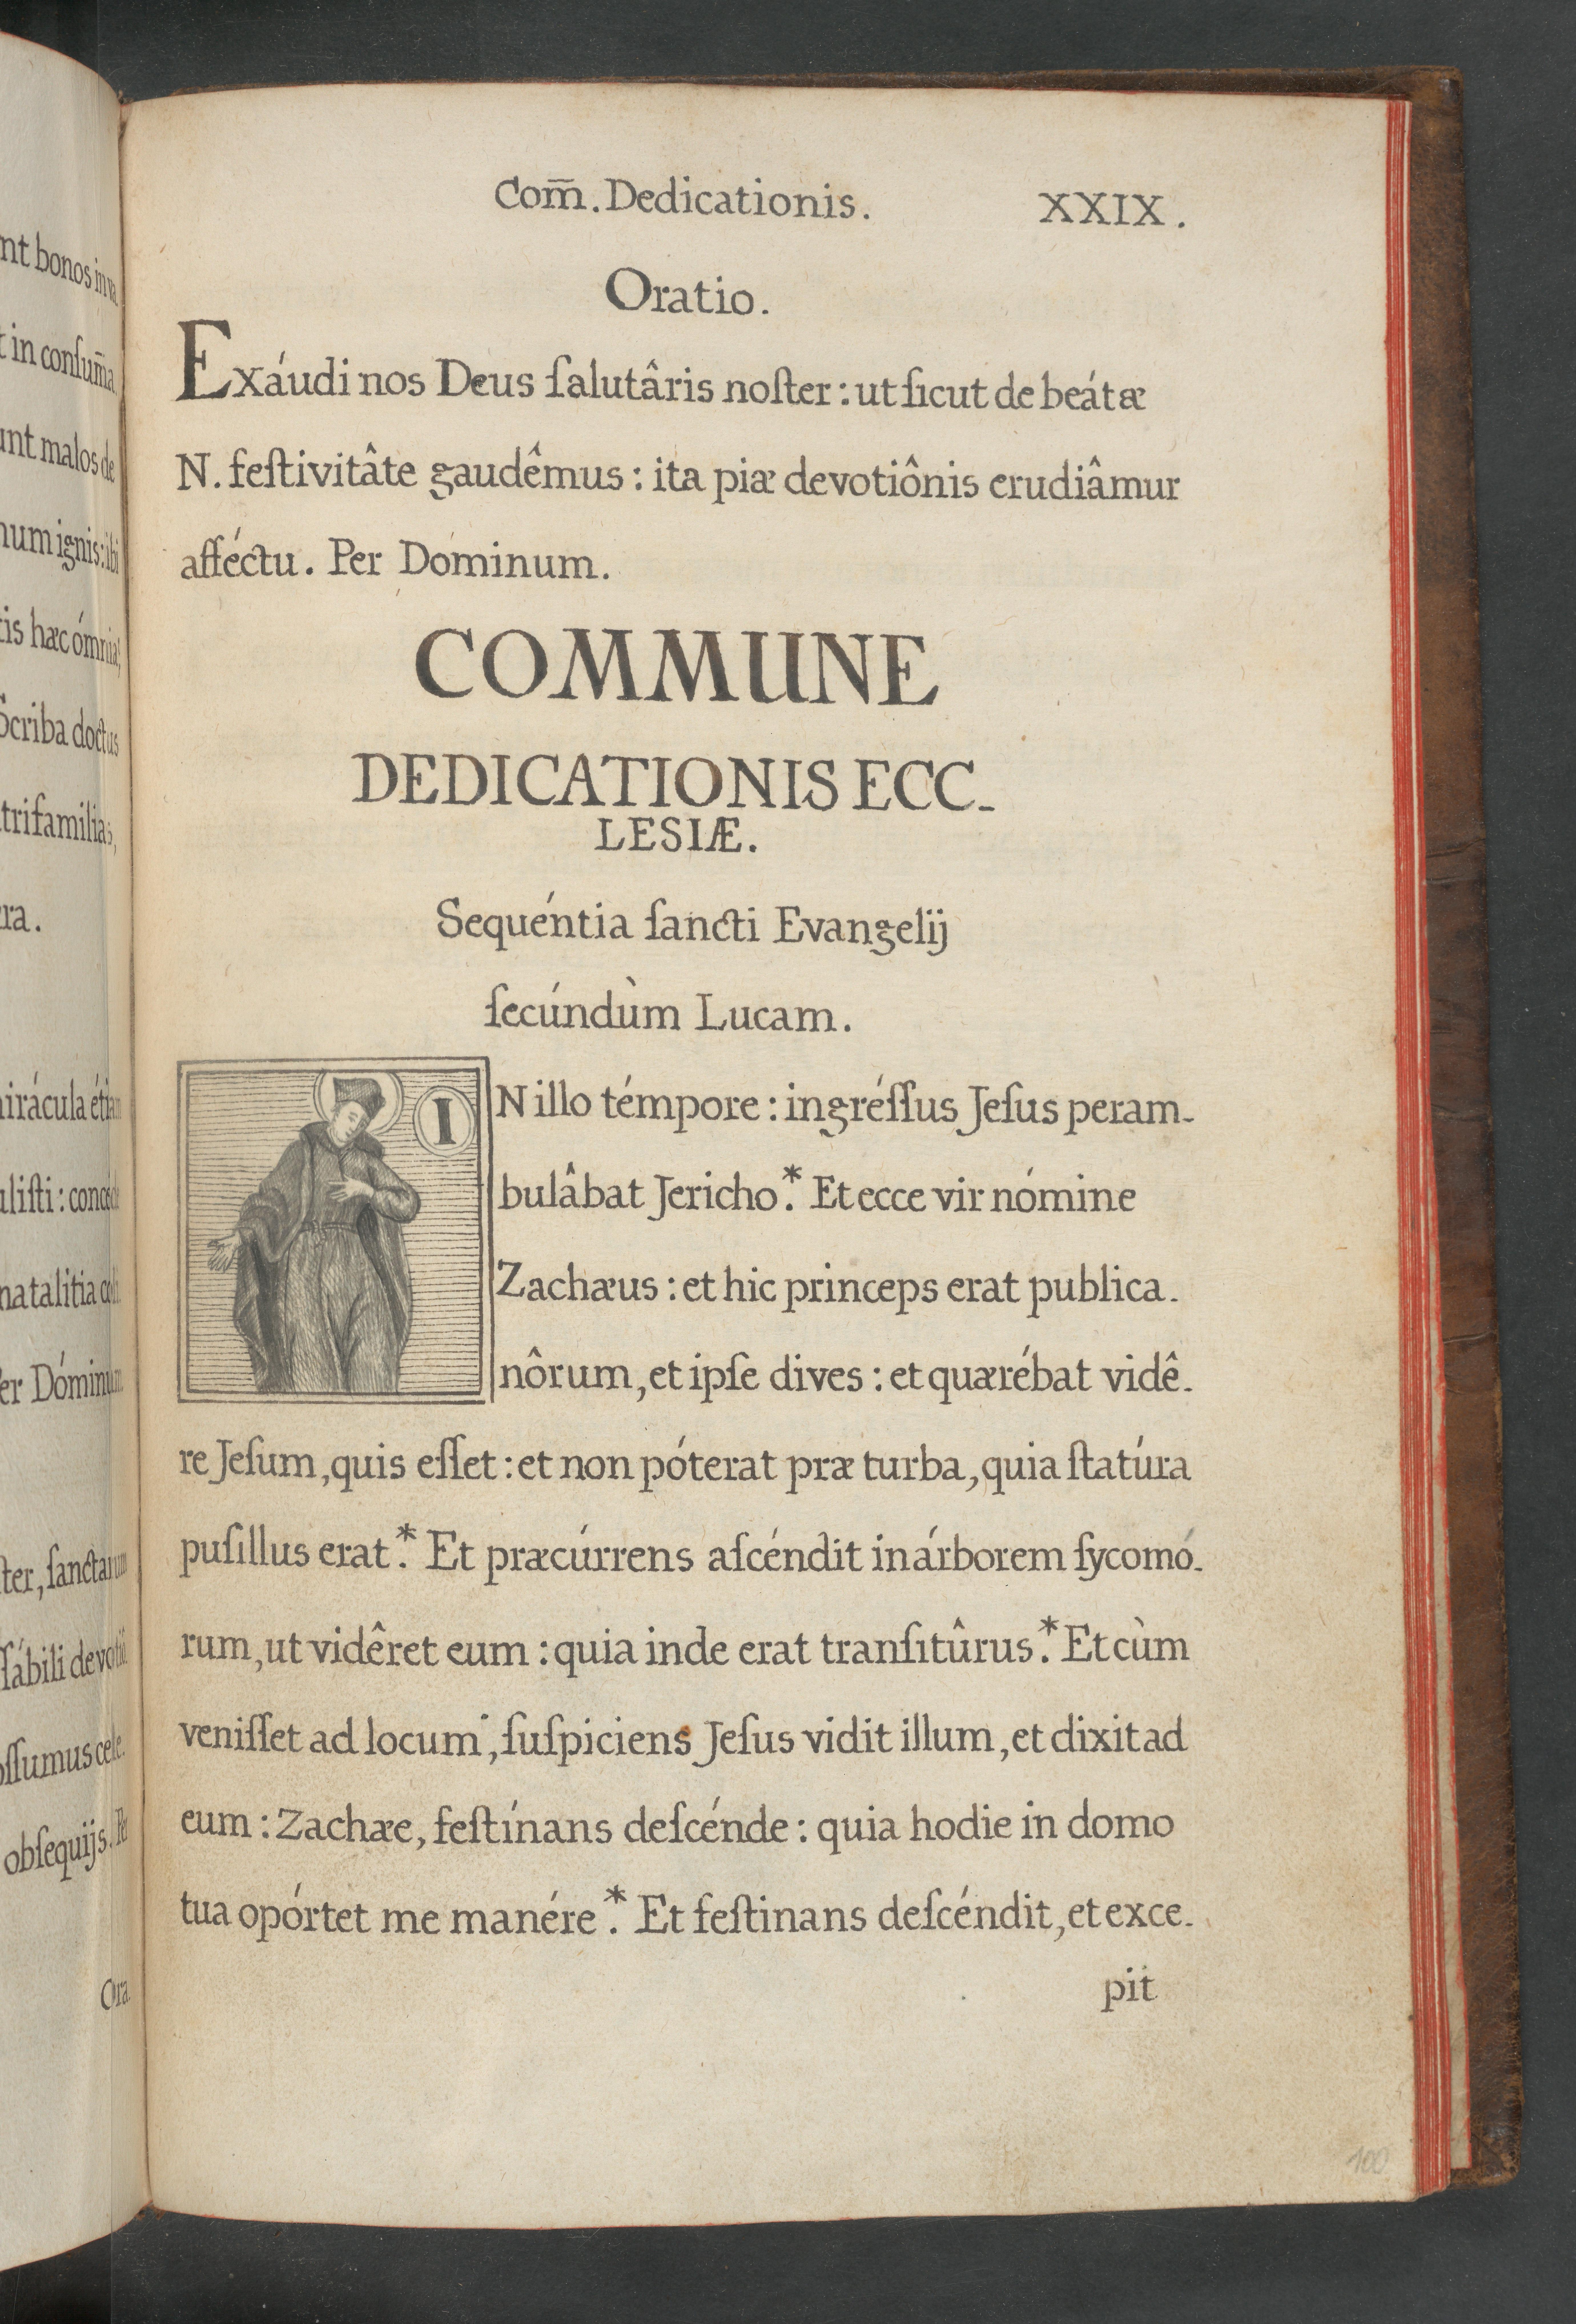 nt bonos in va
t in conſum̄a
unt malos de
num ignis: ibi
tis hæc ómnia?
Scriba doctus
trifamilias,
ra.
irácula étiam
uliſti: concéde
natalitia
er Dóminum
ter, ſanctarum
ſábili devoti
oſſumus cele.
obſequijs. Per
Ora
Com̄. Dedicationis. XXIX.
Oratio.
Exáudi nos Deus ſalutâris noſter: ut ſicut de beátæ
N. feſtivitâte gaudêmus: ita piæ devotiônis erudiâmur
afféctu. Per Dóminum.
COMMUNE
DEDICATIONIS ECC-
LESIÆ.
Sequéntia ſancti Evangelij
ſecúndùm Lucam.
IN illo témpore: ingréſſus Jeſus peram-
bulâbat Jericho.* Et ecce vir nómine
Zachæus: et hic princeps erat publica-
nôrum, et ipſe dives: et quærébat vidê-
re Jeſum, quis eſſet: et non póterat præ turba, quia ſtatúra
puſillus erat.* Et præcúrrens aſcéndit in árborem ſycomó-
rum, ut vidêret eum: quia inde erat tranſitûrus.* Et cùm
veniſſet ad locum, ſuſpiciens Jeſus vidit illum, et dixit ad
eum: Zachæe, feſtínans deſcénde: quia hodie in domo
tua opórtet me manére.* Et feſtinans deſcéndit, et exce-
pit
100